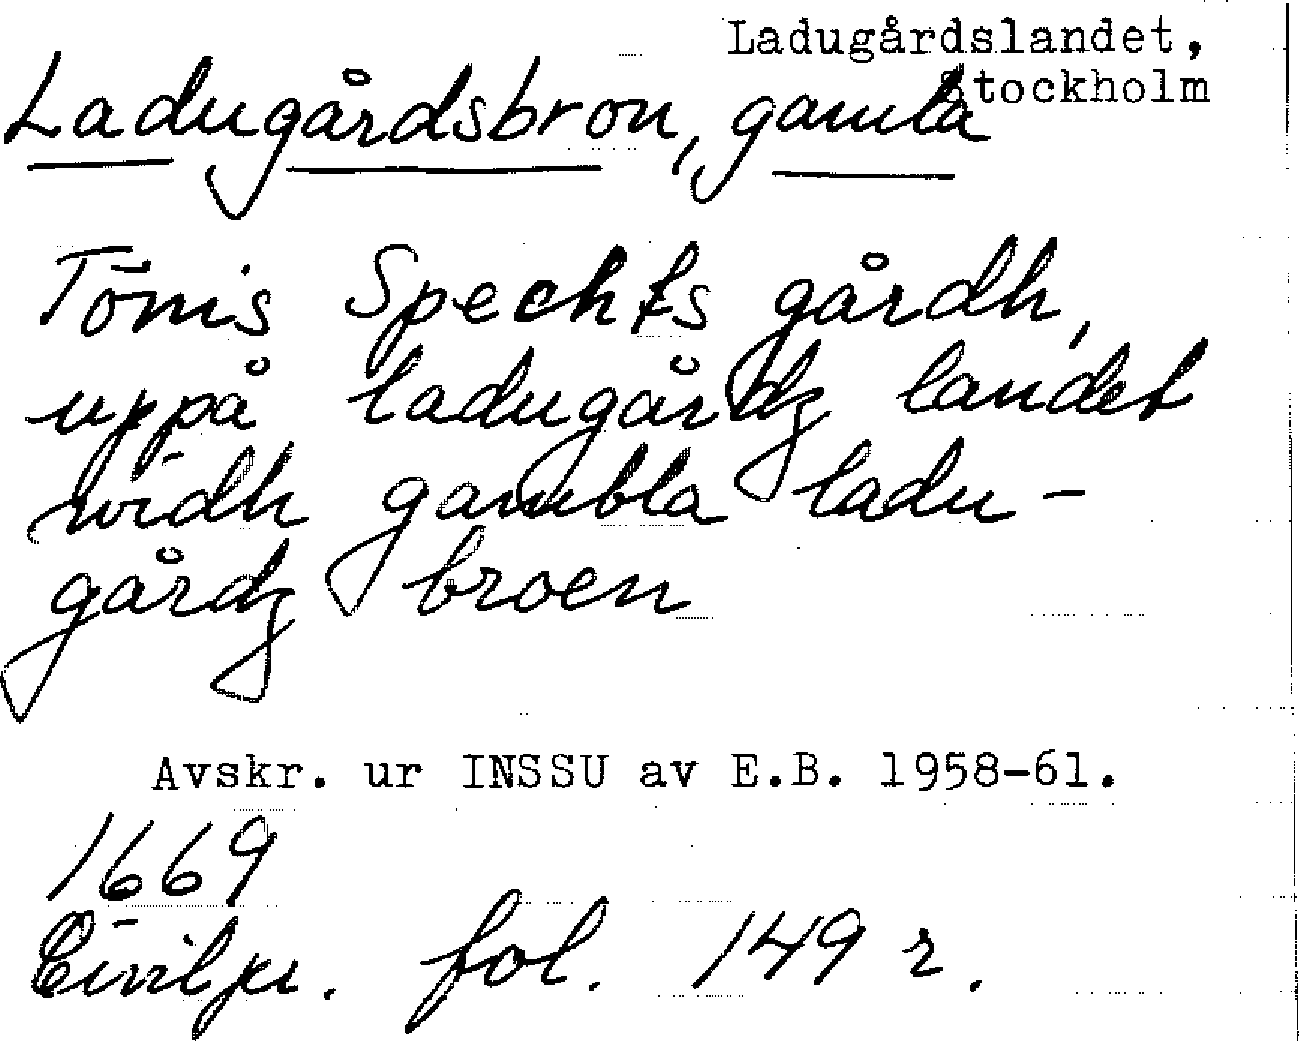 Ladugårdslandet,
Stockholm
Ladugårdsbron, gamla
Tönis Spechts gårdh,
uppå ladugårdz landet
widh gambla ladu-
gårdz broen
Avskr. ur INSSU av E.B. 1958-61.
1669
Civilpr. fol. 149 r.